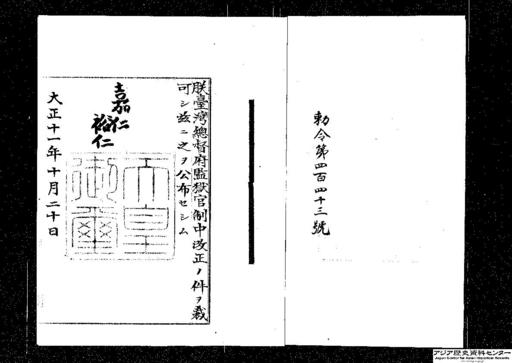 勅令第四百四十三號
朕臺灣總督府監獄官制中改正ノ件ヲ裁
可シ茲ニ之ヲ公布セシム
嘉仁
裕仁
天皇
御璽
大正十一年十月二十日
アジア歴史資料センター
Japan Center for Asian Historical Records